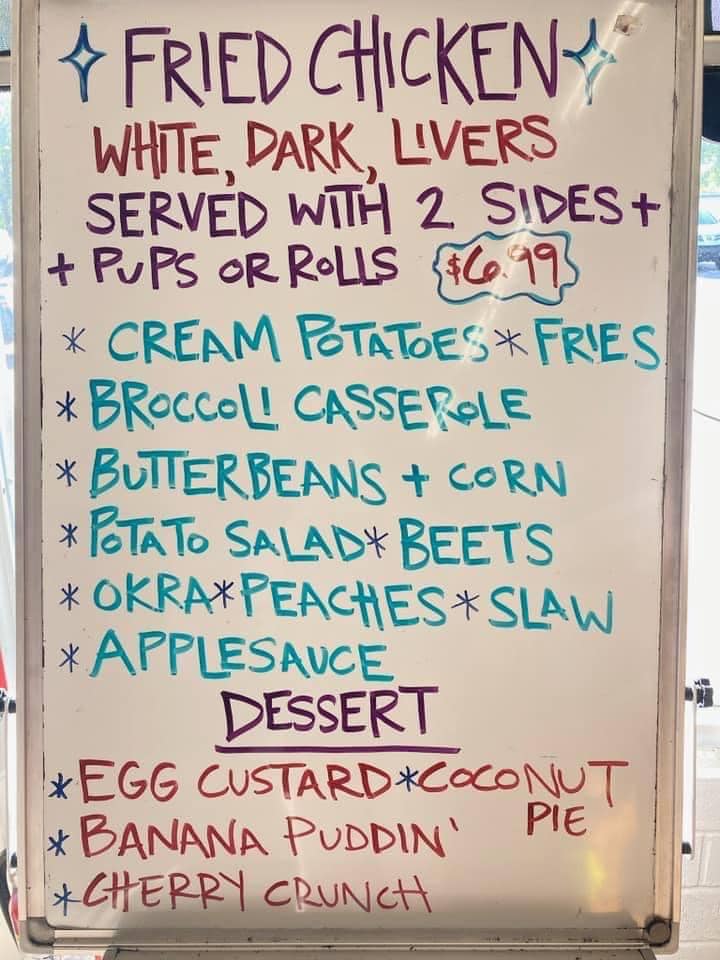 FRIED CHICKEN
WHITE, DARK, LIVERS
SERVED WITH 2 SIDES +
+ PUPS OR ROLLS $6.99
* CREAM POTATOES * FRIES
* BROCCOLI CASSEROLE
* BUTTERBEANS + CORN
* POTATO SALAD * BEETS
* OKRA * PEACHES * SLAW
* APPLESAUCE
DESSERT
* EGG CUSTARD * COCONUT
PIE
* BANANA PUDDIN'
* CHERRY CRUNCH